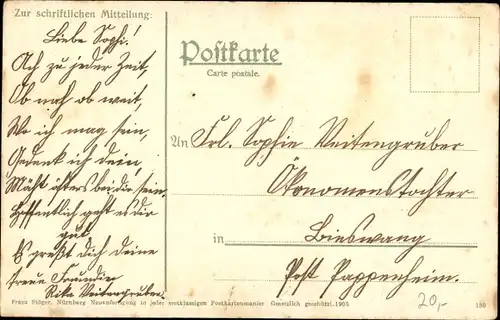 Zur schriftlichen Mitteilung:
Liebe Sophi!
Ach zu jeder Zeit,
Ob nah ob weit,
Wo ich mag sein,
Gedenk ich dein,
Möcht öfters bei dir sein.
Hoffentlich geht es dir
gut
Es grüßt dich deine
treue Freundin
Rika Veitengruber.
Postkarte
Carte postale.
An Frl. Sophie Veitengruber
Ökonomenstochter
in Bieswang
Post Pappenheim.
20,-
Nürnberg Neuanfertigung in jeder erstklassigen Postkartenmanier Gesetzlich geschützt. 1905
180